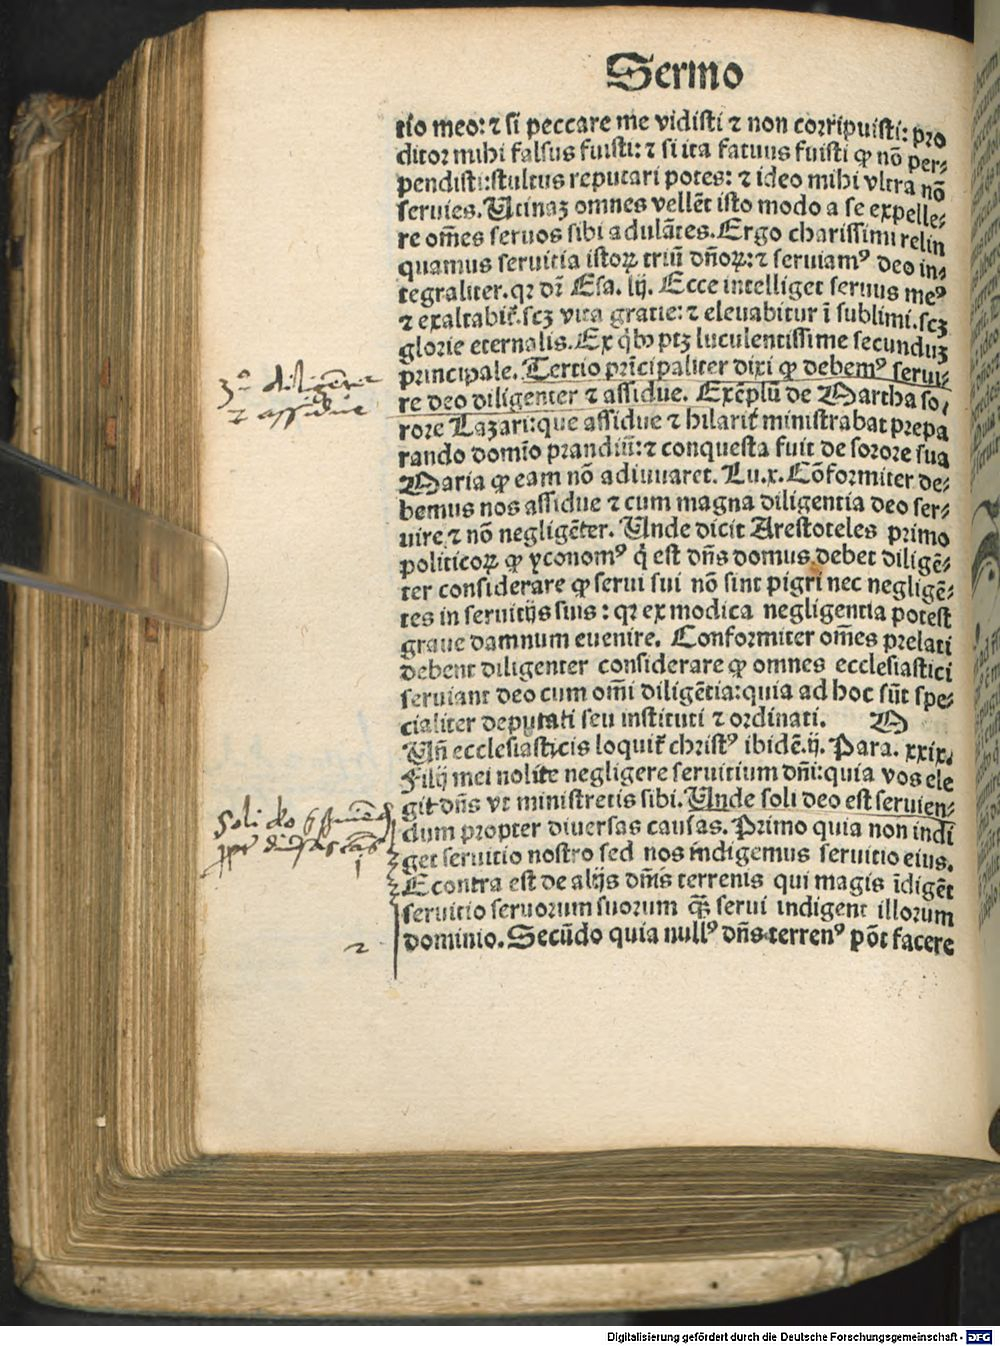 Sermo
tio meo: ⁊ si peccare me vidisti ⁊ non corripuisti: pro
ditor mihi falsus fuisti: ⁊ si ita fatuus fuisti ꝙ nō per-
pendisti: stultus reputari potes: ⁊ ideo mihi vltra nō
seruies. Utinaꝫ omnes vellēt isto modo a se expelle-
re om̄es seruos sibi adulātes. Ergo charissimi relin
quamus seruitia istoꝝ triū dn̄oꝝ: ⁊ seruiamꝰ deo in-
tegraliter. qꝛ dī Esa. lij. Ecce intelliget seruus meꝰ
⁊ exaltabit᷑. scꝫ vita gratie: ⁊ eleuabitur ī sublimi. scꝫ
glorie eternalis. Ex qͥbꝰ ptꝫ luculentissime secunduꝫ
principale. Tertio prīcipaliter dixi ꝙ debemꝰ serui-
re deo diligenter ⁊ assidue. Exēplū de Martha so-
rore Lazari: que assidue ⁊ hilarit᷑ ministrabat prepa
rando domīo prandiū: ⁊ conquesta fuit de sorore sua
Maria ꝙ eam nō adiuuaret. Lu.x. Cōformiter de-
bemus nos assidue ⁊ cum magna diligentia deo ser-
uire, ⁊ nō negligēter. Unde dicit Arestoteles primo
politicoꝝ ꝙ yconomꝰ qͥ est dn̄s domus debet diligē-
ter considerare ꝙ serui sui nō sint pigri nec negligē-
tes in seruitijs suis: qꝛ ex modica negligentia potest
graue damnum euenire. Conformiter om̄es prelati
debent diligenter considerare ꝙ omnes ecclesiastici
seruiant deo cum om̄i diligētia: quia ad hoc sūt spe-
cialiter deputati seu instituti ⁊ ordinati. O
Un̄ ecclesiasticis loquit᷑ christꝰ ibidē.ij. Para. xxix.
Filij mei nolite negligere seruitium dn̄i: quia vos ele
git dn̄s vt ministretis sibi. Unde soli deo est seruien-
dum propter diuersas causas. Primo quia non indi
get seruitio nostro sed nos indigemus seruitio eius.
Econtra est de alijs dn̄is terrenis qui magis īdigēt
seruitio seruorum suorum qͣ̄ serui indigent illorum
dominio. Secūdo quia nullꝰ dn̄s terrenꝰ pōt facere
3º diligenter
⁊ assidue
soli deo
1
2
Digitalisierung gefördert durch die Deutsche Forschungsgemeinschaft - DFG